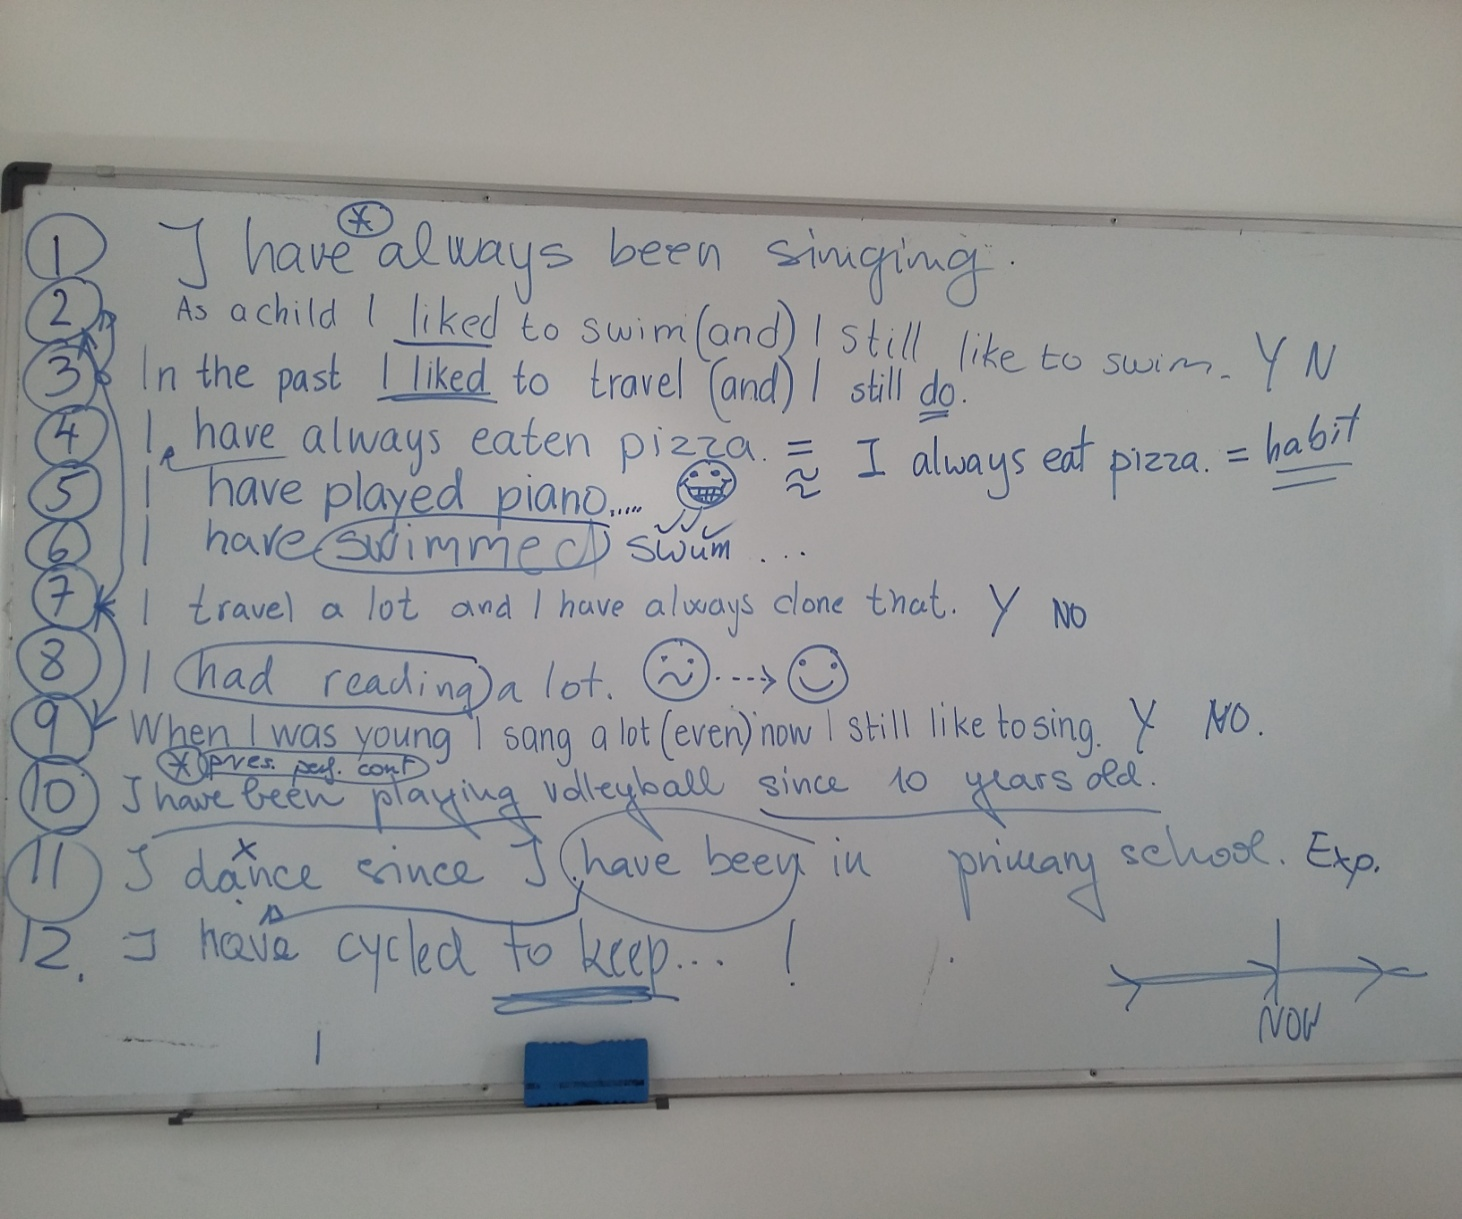 1 I have * always been siniging.
2 As a child I liked to swim (and) I still like to swim. Y N
3 In the past I liked to travel (and) I still do.
4 I have always eaten pizza. = ≈ I always eat pizza. = habit
5 I have played piano.....
6 I have swimmed swum ...
7 I travel a lot and I have always done that. Y NO
8 I had reading a lot.
9 When I was young I sang a lot (even) now I still like to sing. Y NO.
* pres. perf. cont
10 I have been playing volleyball since 10 years old.
11 I dance since I have been in primary school. Exp.
12. I have cycled to keep... !
NOW